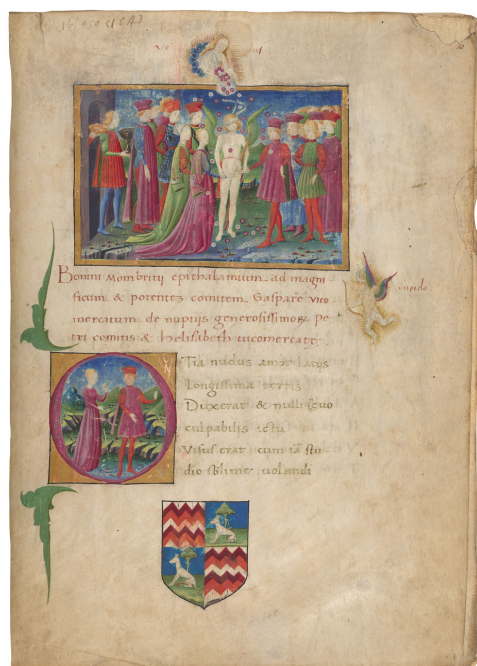 Bonini Mombritij epithalamium ad magni
ficum & potentez comitem Gaspare vico
mercatum de nuptijs generosissimoꝝ pe
tri comitis & helisabeth vicomercatꝝ.
cupido
Otia nudus amor latus
Longissima tertis
Duxerat & nulli sęuo
culpabilis actu
Visus erat cum iā stu
dio sublime uolandi